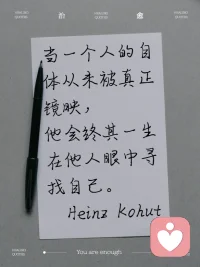 治 愈
当一个人的自
体从未被真正
镜映,
他会终其一生
在他人眼中寻
找自己。
Heinz Kohut
You are enough